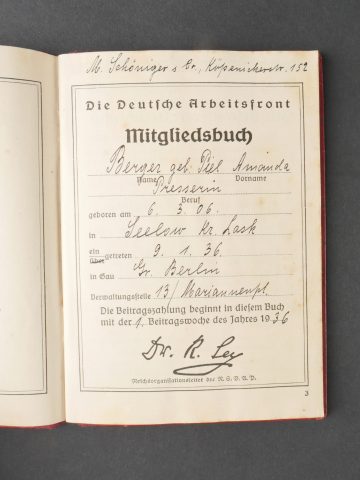 M. Schöniger & Co, Köpenickerstr. 152
Die Deutsche Arbeitsfront
Mitgliedsbuch
Berger geb. Piel Amanda
Name Vorname
Presserin
Beruf
geboren am 6. 3. 06.
in Seelow Kr. Lask
ein
über getreten 9. 1. 36.
in Gau Gr. Berlin
Verwaltungsstelle 13/Mariannenpl.
Die Beitragszahlung beginnt in diesem Buch
mit der 1. Beitragswoche des Jahres 1936
Dr. R. Ley
Reichsorganisationsleiter der N.S.D.A.P.
3